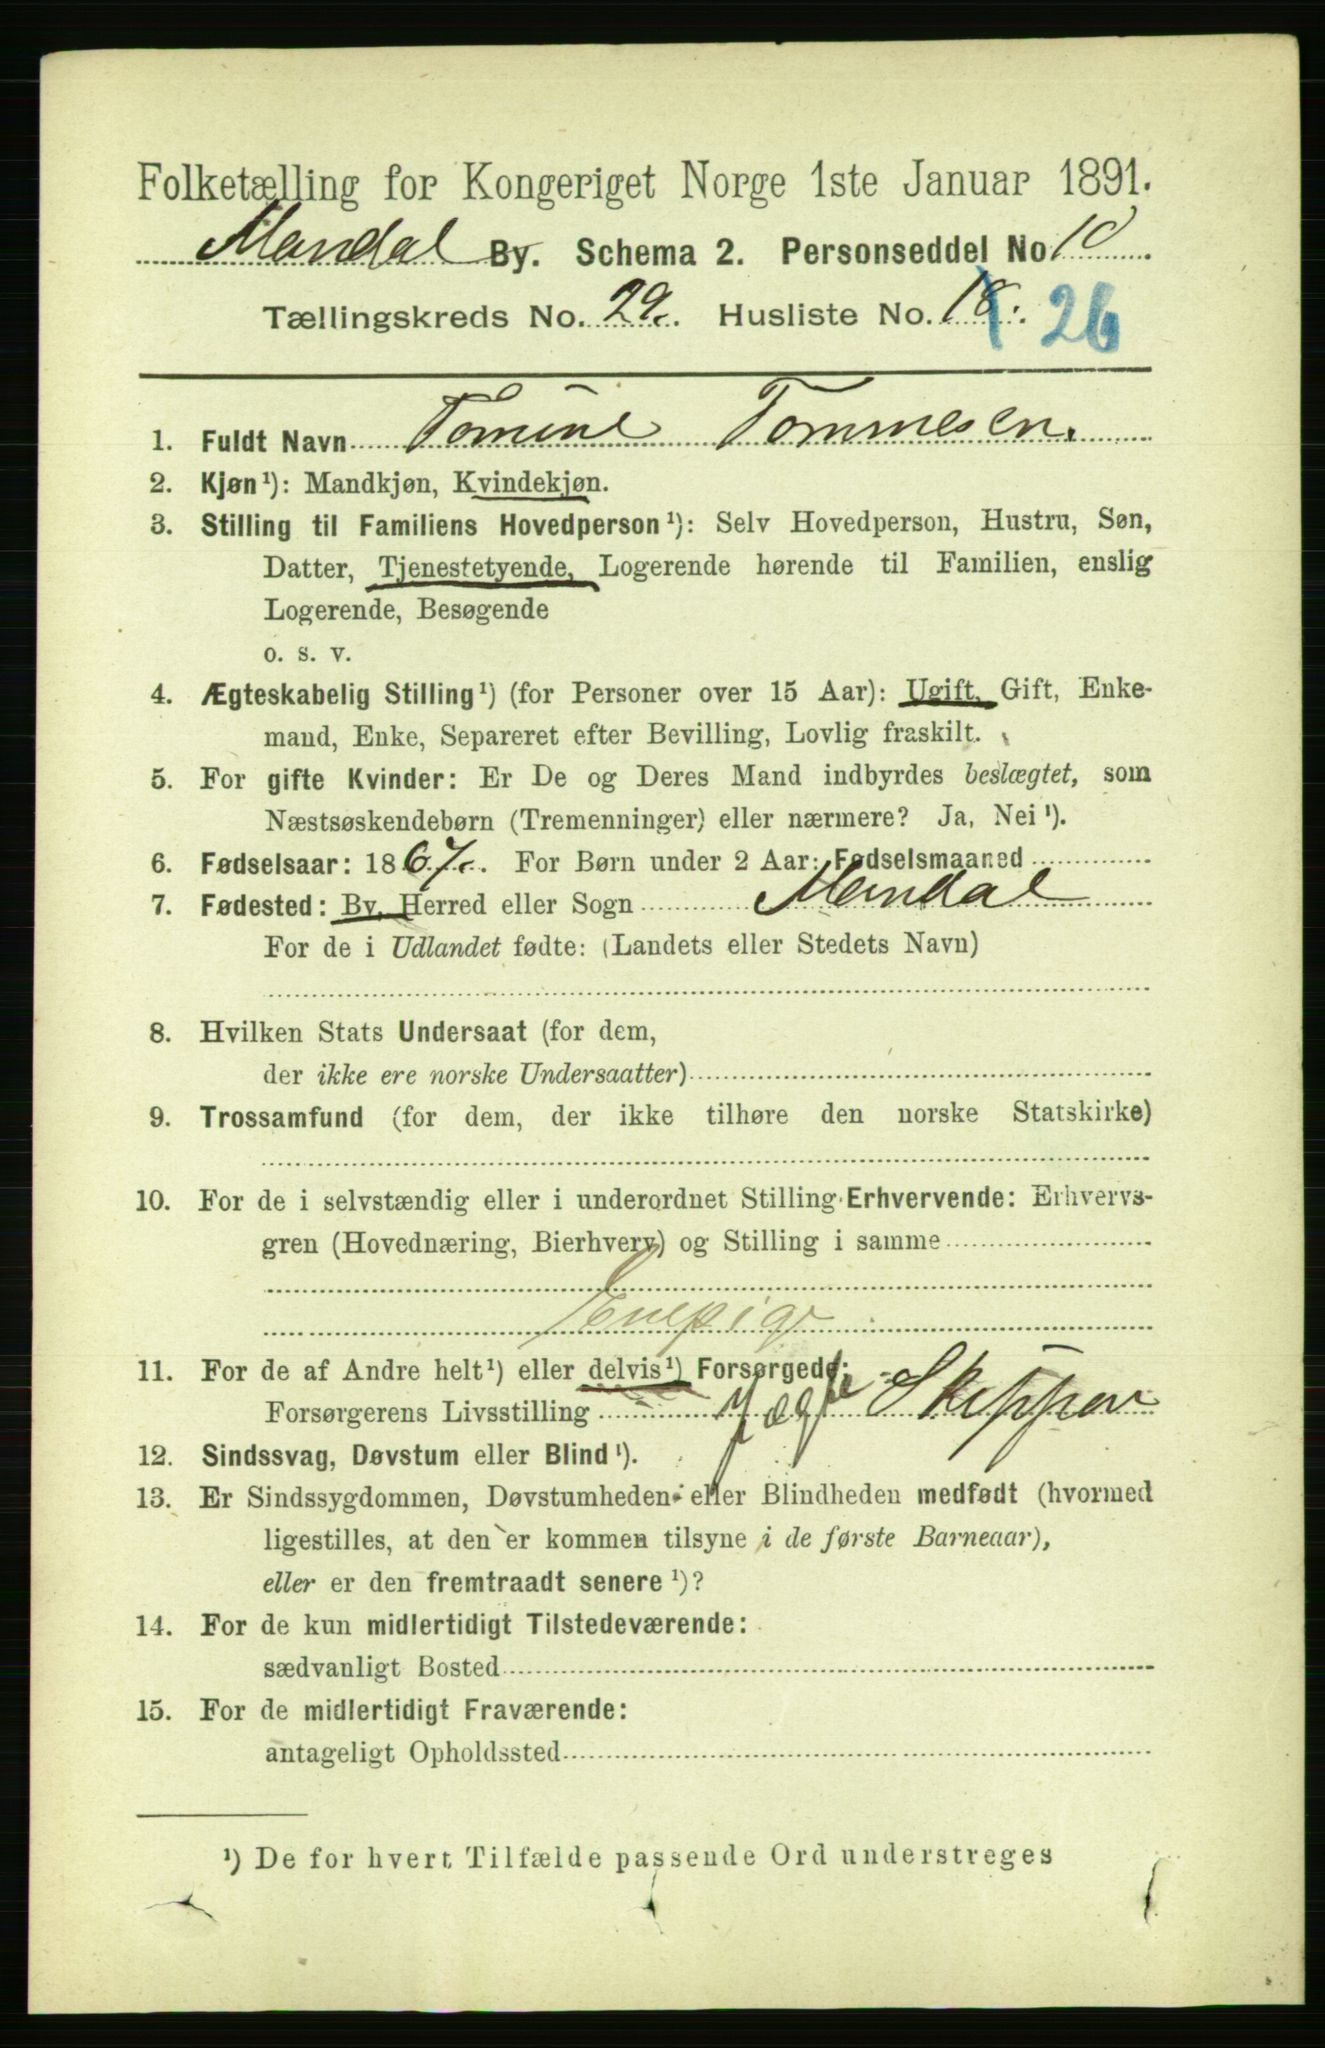 Folketælling for Kongeriget Norge 1ste Januar 1891.
Mandal By. Schema 2. Personseddel No 10
Tællingskreds No. 29. Husliste No. 18. 26
1. Fuldt Navn Tomine Tommesen.
2. Kjøn¹): Mandkjøn, Kvindekjøn.
3. Stilling til Familiens Hovedperson¹): Selv Hovedperson, Hustru, Søn,
Datter, Tjenestetyende, Logerende hørende til Familien, enslig
Logerende, Besøgende
o. s. v.
4. Ægteskabelig Stilling¹) (for Personer over 15 Aar): Ugift, Gift, Enke-
mand, Enke, Separeret efter Bevilling, Lovlig fraskilt.
5. For gifte Kvinder: Er De og Deres Mand indbyrdes beslægtet, som
Næstsøskendebørn (Tremenninger) eller nærmere? Ja, Nei¹).
6. Fødselsaar: 1867. For Børn under 2 Aar: Fødselsmaaned
7. Fødested: By, Herred eller Sogn Mandal
For de i Udlandet fødte: (Landets eller Stedets Navn)
8. Hvilken Stats Undersaat (for dem,
der ikke ere norske Undersaatter)
9. Trossamfund (for dem, der ikke tilhøre den norske Statskirke)
10. For de i selvstændig eller i underordnet Stilling Erhvervende: Erhvervs-
gren (Hovednæring, Bierhverv) og Stilling i samme
11. For de af Andre helt¹) eller delvis¹) Forsørgede:
Forsørgerens Livsstilling Skipper
12. Sindssvag, Døvstum eller Blind¹).
13. Er Sindssygdommen, Døvstumheden eller Blindheden medfødt (hvormed
ligestilles, at den er kommen tilsyne i de første Barneaar),
eller er den fremtraadt senere¹)?
14. For de kun midlertidigt Tilstedeværende:
sædvanligt Bosted
15. For de midlertidigt Fraværende:
antageligt Opholdssted
¹) De for hvert Tilfælde passende Ord understreges